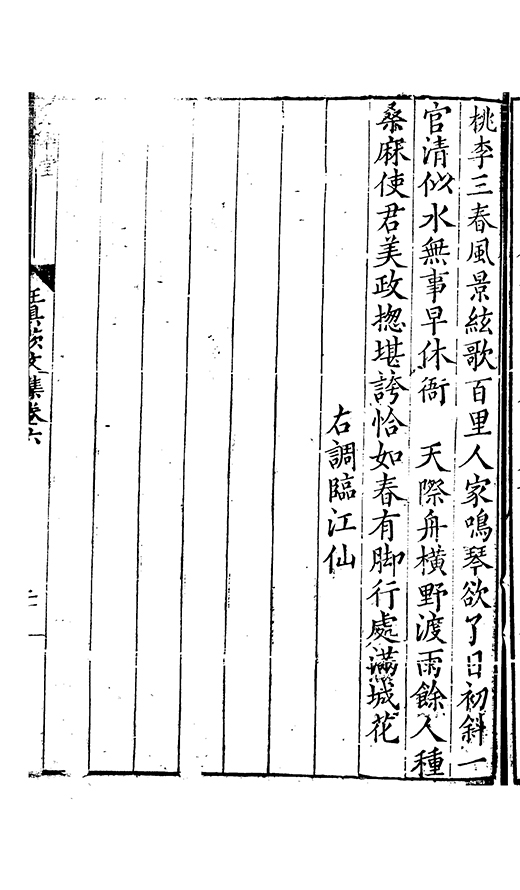 桃李三春風景絃歌百里人家鳴琴欲了日初斜一
官清似水無事早休衙　天際舟橫野渡雨餘人種
桑麻使君美政揔堪誇恰如春有脚行處滿城花
右調臨江仙
文集卷六